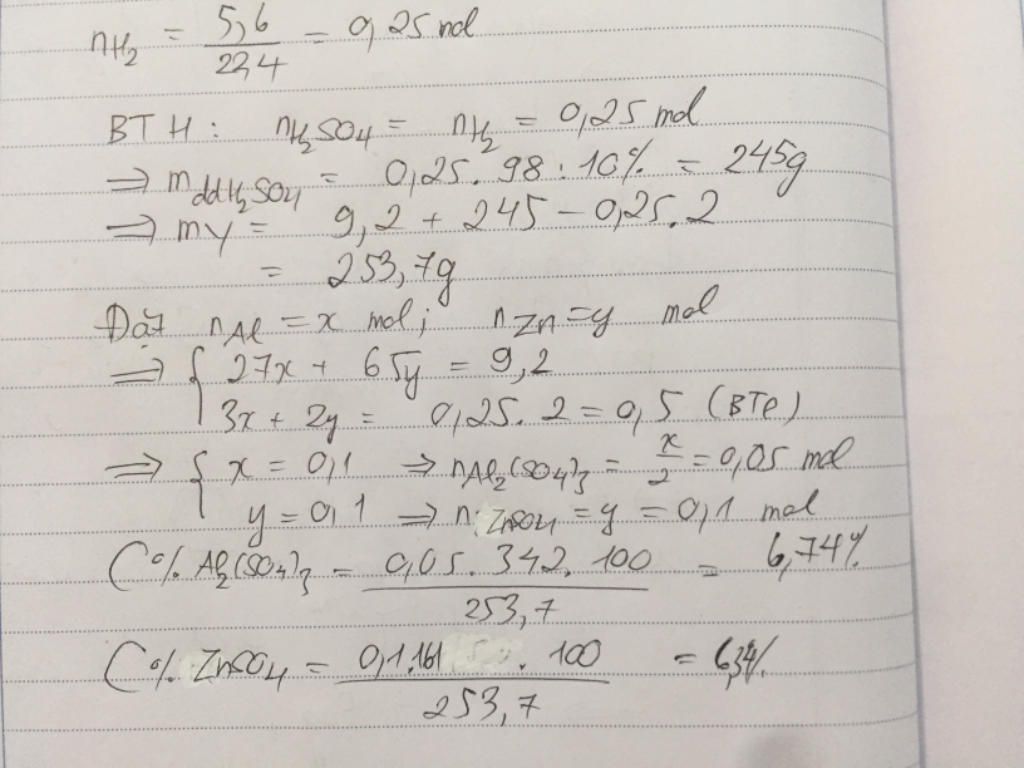 nH₂ = 5,6 / 22,4 = 0,25 mol
BTH: nH₂SO₄ = nH₂ = 0,25 mol
⇒ mddH₂SO₄ = 0,25. 98 : 10% = 245g
⇒ mY = 9,2 + 245 – 0,25.2
= 253,7g
Đặt nAl = x mol; nZn = y mol
⇒ { 27x + 65y = 9,2
3x + 2y = 0,25. 2 = 0,5 (BTe)
⇒ { x = 0,1 ⇒ nAl₂(SO₄)₃ = x/2 = 0,05 mol
y = 0,1 ⇒ nZnSO₄ = y = 0,1 mol
C% Al₂(SO₄)₃ = 0,05. 342. 100 / 253,7 = 6,74%
C% ZnSO₄ = 0,1.161 . 100 / 253,7 = 6,34%